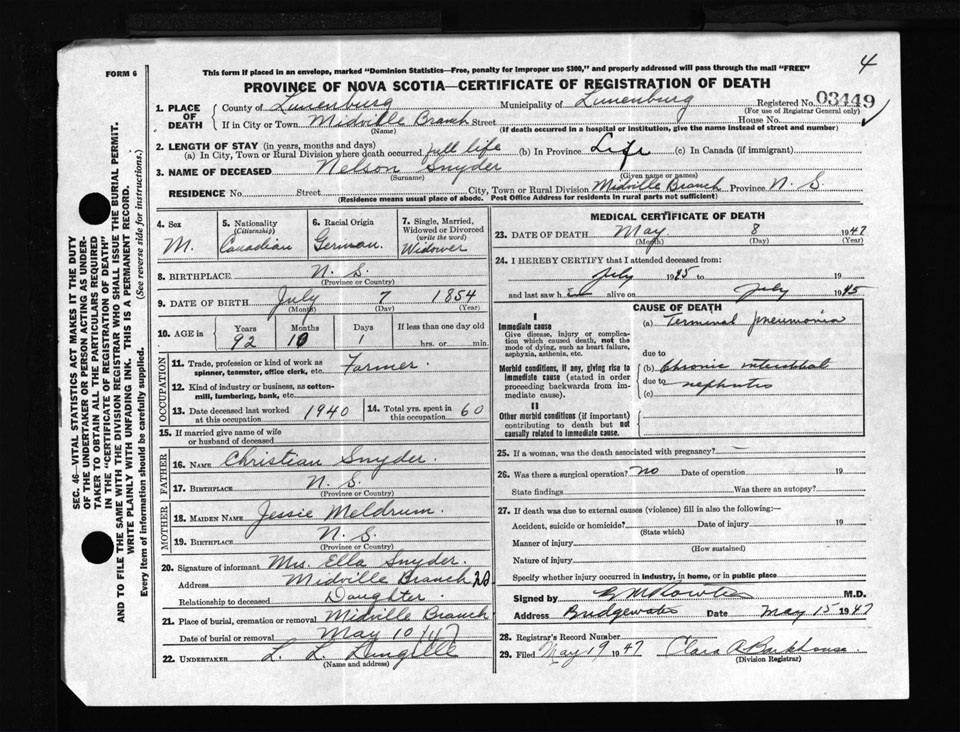 4
FORM 6
This form if placed in an envelope, marked "Dominion Statistics—Free, penalty for improper use $300," and properly addressed will pass through the mail "FREE"
PROVINCE OF NOVA SCOTIA—CERTIFICATE OF REGISTRATION OF DEATH
1. PLACE OF DEATH
County of Lunenburg Municipality of Lunenburg Registered No. 03449
(For use of Registrar General only)
If in City or Town Midville Branch Street House No.
(Name) (If death occurred in a hospital or institution, give the name instead of street and number)
2. LENGTH OF STAY (in years, months and days)
(a) In City, Town or Rural Division where death occurred full life (b) In Province Life (c) In Canada (if immigrant)
3. NAME OF DECEASED Nelson Snyder
(Surname) (Given name or names)
RESIDENCE No. Street City, Town or Rural Division Midville Branch Province N. S.
(Residence means usual place of abode. Post Office Address for residents in rural parts not sufficient)
SEC. 46—VITAL STATISTICS ACT MAKES IT THE DUTY
OF THE UNDERTAKER OR PERSON ACTING AS UNDER-
TAKER TO OBTAIN ALL THE PARTICULARS REQUIRED
IN THE "CERTIFICATE OF REGISTRATION OF DEATH"
AND TO FILE THE SAME WITH THE DIVISION REGISTRAR WHO SHALL ISSUE THE BURIAL PERMIT.
WRITE PLAINLY WITH UNFADING INK. THIS IS A PERMANENT RECORD.
Every item of information should be carefully supplied. (See reverse side for instructions.)
4. Sex
M.
5. Nationality
(Citizenship)
Canadian
6. Racial Origin
German.
7. Single, Married,
Widowed or Divorced
(write the word)
Widower
8. BIRTHPLACE N. S.
(Province or Country)
9. DATE OF BIRTH July 7 1854
(Month) (Day) (Year)
10. AGE in
Years Months Days If less than one day old
92 10 1 hrs. or min.
OCCUPATION
11. Trade, profession or kind of work as
spinner, teamster, office clerk, etc. Farmer.
12. Kind of industry or business, as cotton-
mill, lumbering, bank, etc.
13. Date deceased last worked
at this occupation 1940
14. Total yrs. spent in
this occupation 60
15. If married give name of wife
or husband of deceased
FATHER
16. NAME Christian Snyder.
17. BIRTHPLACE N. S.
(Province or Country)
MOTHER
18. MAIDEN NAME Jessie Meldrum.
19. BIRTHPLACE N. S.
(Province or Country)
20. Signature of informant Mrs. Ella Snyder.
Address Midville Branch
Relationship to deceased Daughter.
21. Place of burial, cremation or removal Midville Branch
Date of burial or removal May 10/47
22. UNDERTAKER L. L.
(Name and address)
MEDICAL CERTIFICATE OF DEATH
23. DATE OF DEATH May 8 1947
(Month) (Day) (Year)
24. I HEREBY CERTIFY that I attended deceased from:
July 1945 to 19
and last saw h alive on July 1945
CAUSE OF DEATH
I
Immediate cause
Give disease, injury or complica-
tion which caused death, not the
mode of dying, such as heart failure,
asphyxia, asthenia, etc.
(a) Terminal pneumonia
due to
Morbid conditions, if any, giving rise to
immediate cause (stated in order
proceeding backwards from im-
mediate cause).
(b) Chronic interstitial
due to nephritis
(c)
II
Other morbid conditions (if important)
contributing to death but not
causally related to immediate cause.
25. If a woman, was the death associated with pregnancy? —
26. Was there a surgical operation? no Date of operation 19
State findings Was there an autopsy?
27. If death was due to external causes (violence) fill in also the following:—
Accident, suicide or homicide? Date of injury 19
(State which)
Manner of injury
(How sustained)
Nature of injury
Specify whether injury occurred in industry, in home, or in public place
Signed by M.D.
Address Bridgewater Date May 15 1947
28. Registrar's Record Number
29. Filed May 19 1947 Clara A Barkhouse.
(Division Registrar)